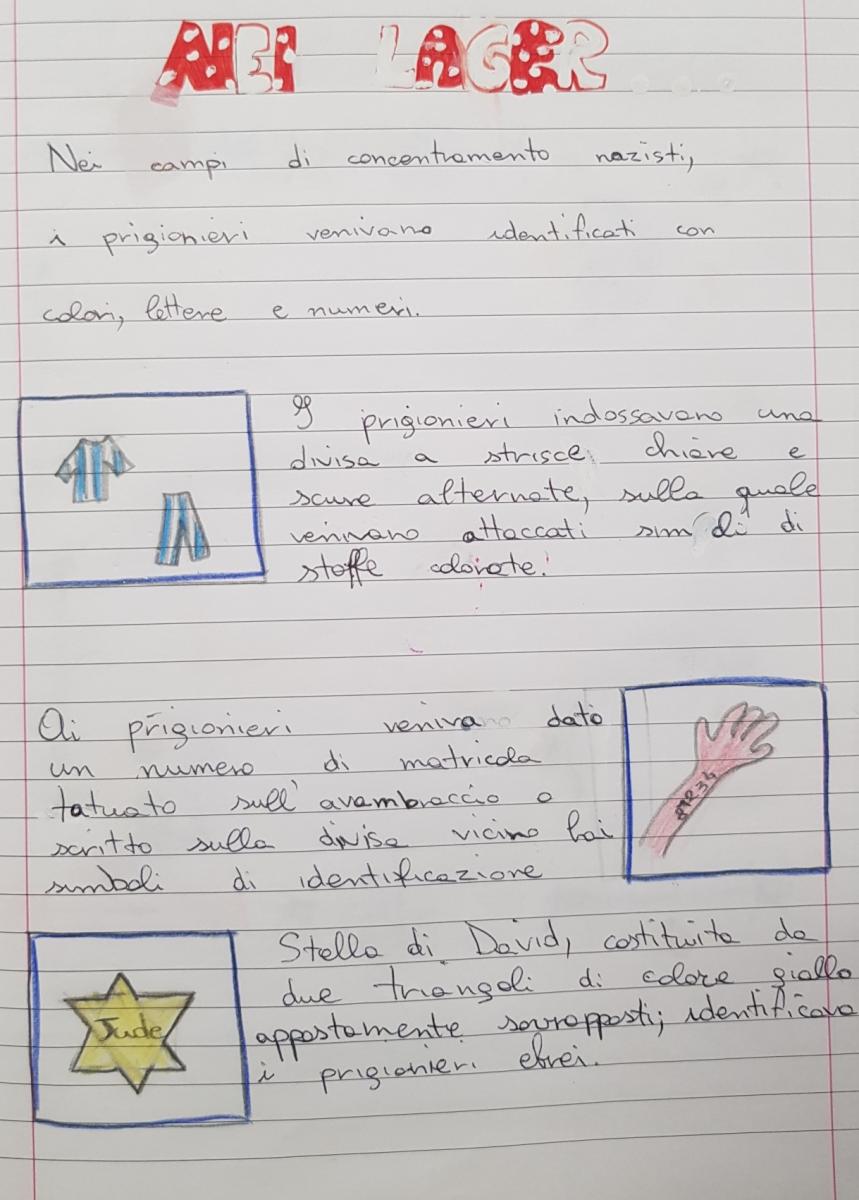 NEI LAGER...
Nei campi di concentramento nazisti,
i prigionieri venivano identificati con
colori, lettere e numeri.
I prigionieri indossavano una
divisa a strisce chiare e
scure alternate, sulla quale
venivano attaccati simboli di
stoffe colorate.
Ai prigionieri veniva dato
un numero di matricola
tatuato sull'avambraccio o
scritto sulla divisa vicino hai
simboli di identificazione
Stella di David, costituita da
due triangoli di colore giallo
appostamente sovrapposti; identificava
i prigionieri ebrei.
Jude